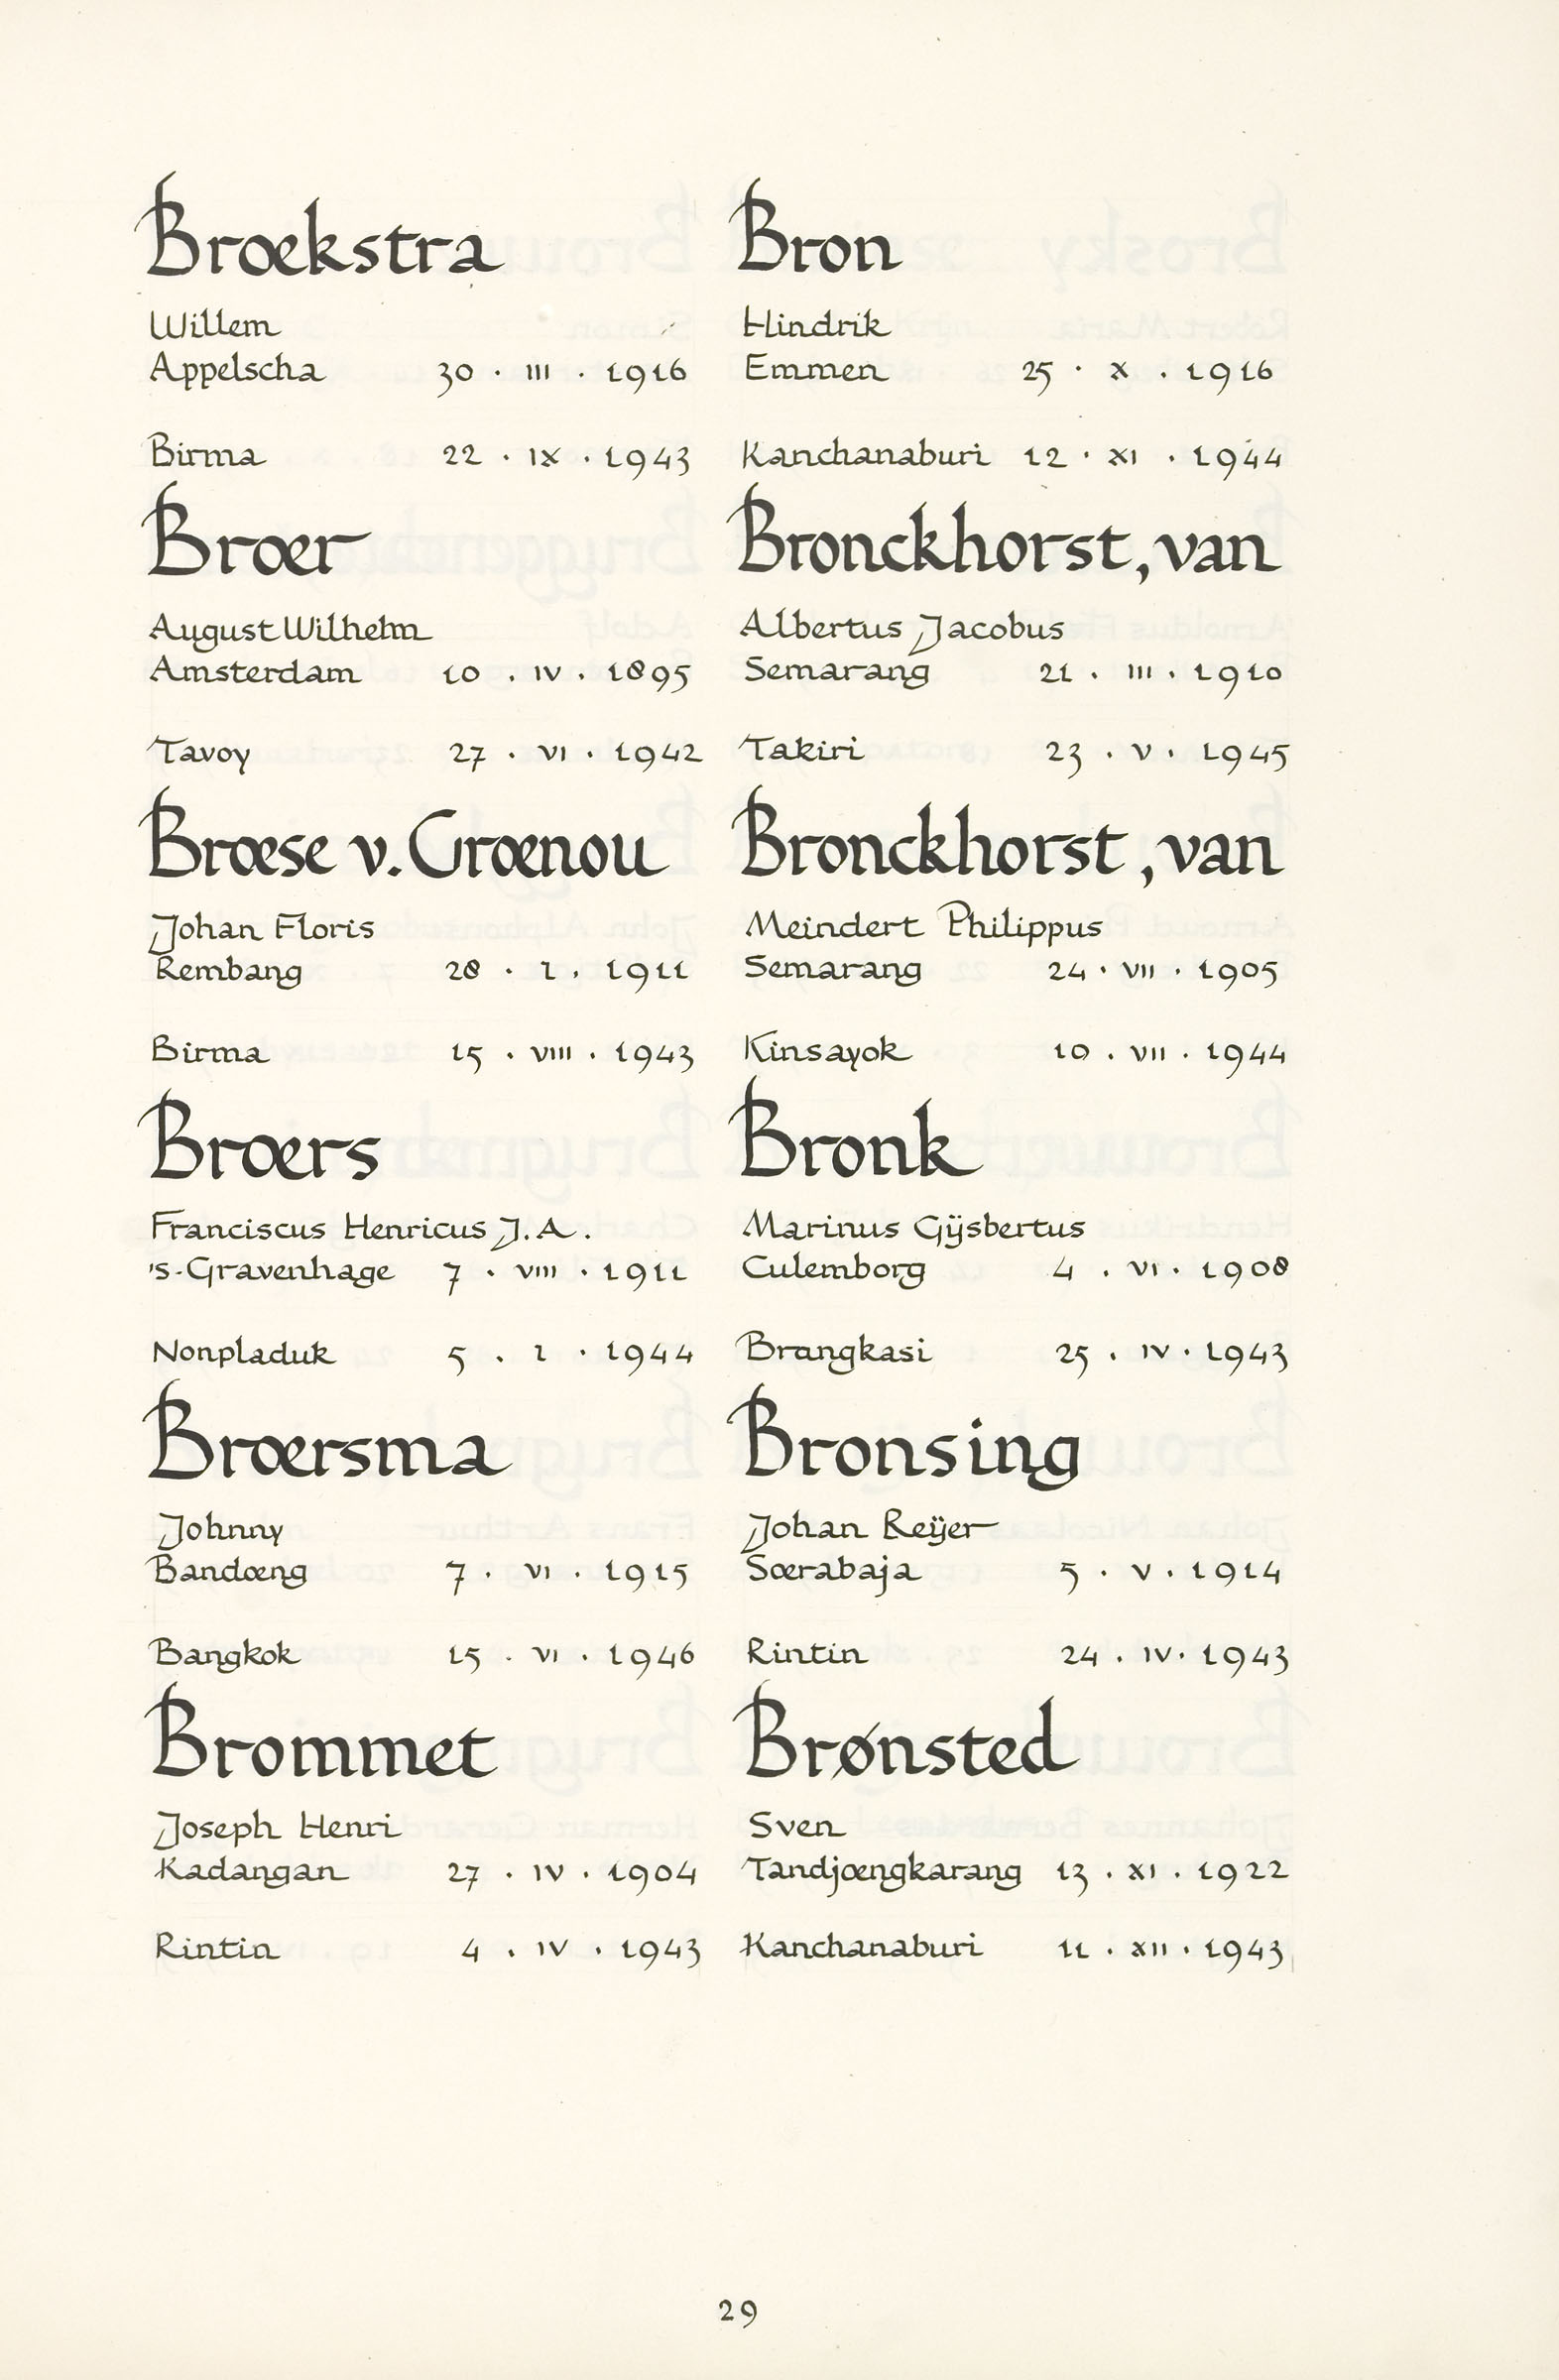 Broekstra
Willem
Appelscha 30 . III . 1916
Birma 22 . IX . 1943
Broer
August Wilhelm
Amsterdam 10 . IV . 1895
Tavoy 27 . VI . 1942
Broese v. Groenou
Johan Floris
Rembang 28 . I . 1911
Birma 15 . VIII . 1943
Broers
Franciscus Henricus J.A.
's-Gravenhage 7 . VIII . 1911
Nonpladuk 5 . I . 1944
Broersma
Johnny
Bandoeng 7 . VI . 1915
Bangkok 15 . VI . 1946
Brommet
Joseph Henri
Kadangan 27 . IV . 1904
Rintin 4 . IV . 1943
Bron
Hindrik
Emmen 25 . X . 1916
Kanchanaburi 12 . XI . 1944
Bronckhorst, van
Albertus Jacobus
Semarang 21 . III . 1910
Takiri 23 . V . 1945
Bronckhorst, van
Meindert Philippus
Semarang 24 . VII . 1905
Kinsayok 10 . VII . 1944
Bronk
Marinus Gijsbertus
Culemborg 4 . VI . 1908
Brangkasi 25 . IV . 1943
Bronsing
Johan Reijer
Soerabaja 5 . V . 1914
Rintin 24 . IV . 1943
Brønsted
Sven
Tandjoengkarang 13 . XI . 1922
Kanchanaburi 11 . XII . 1943
29